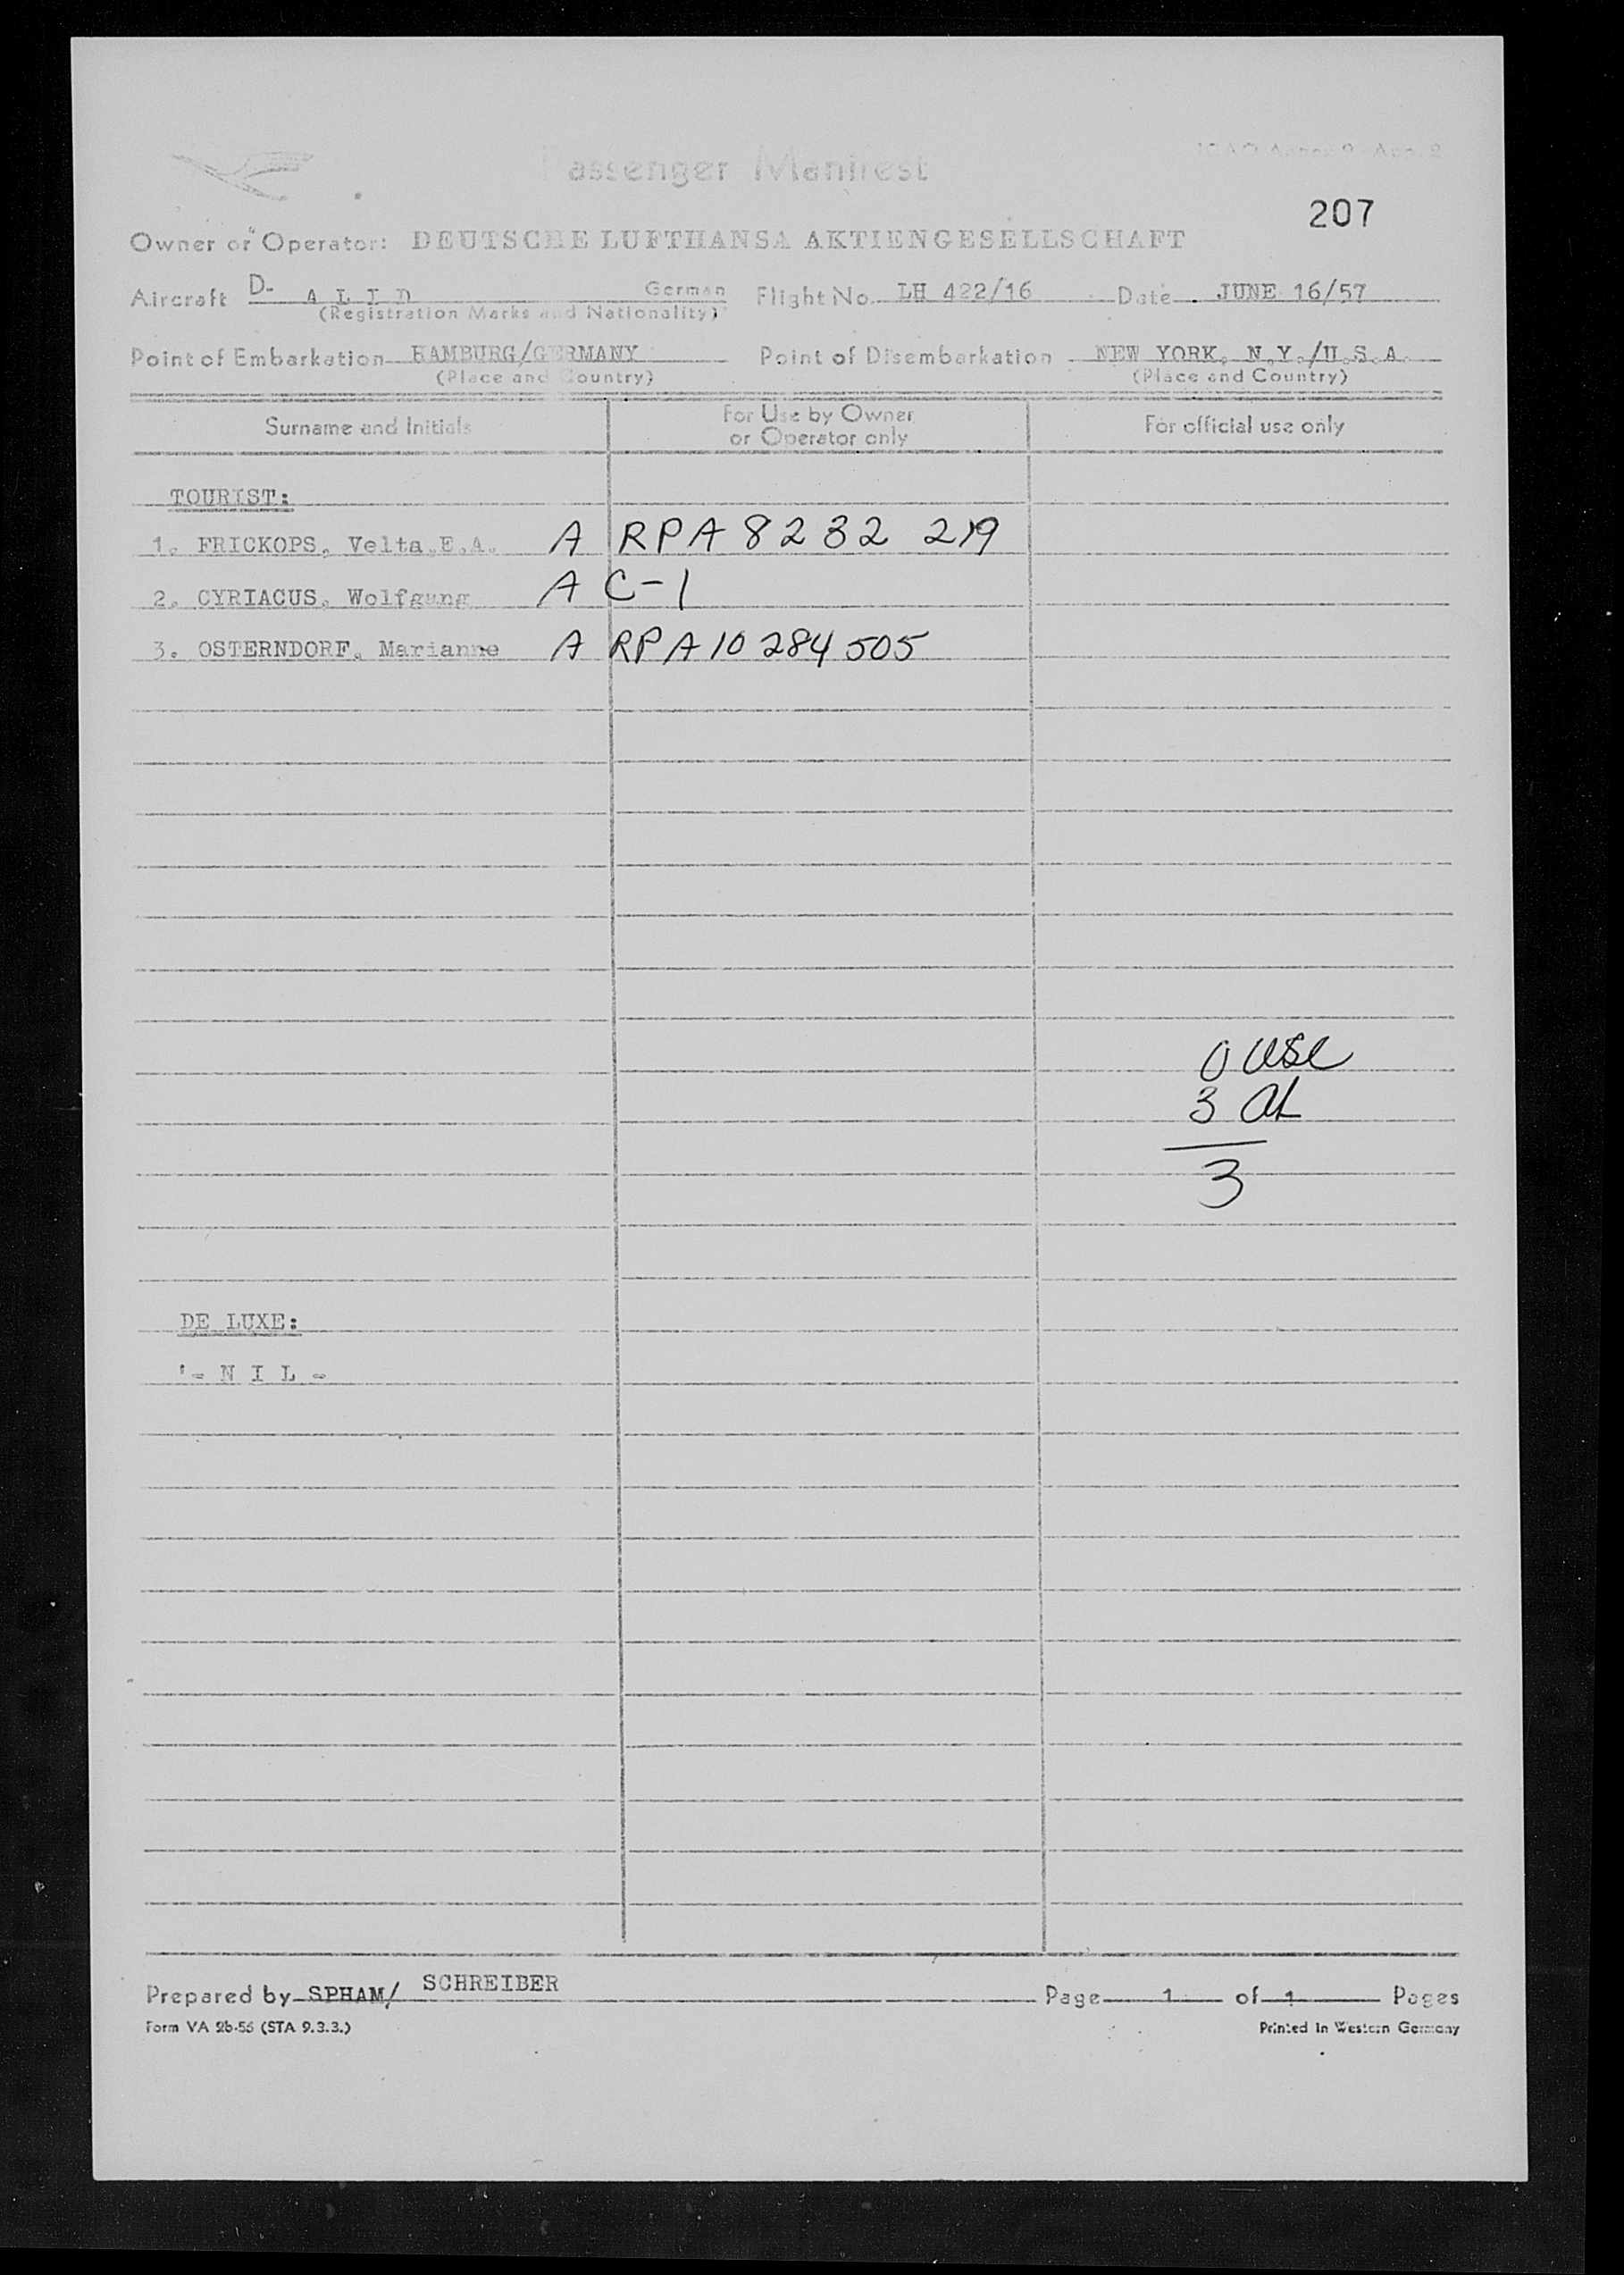 Passenger Manifest
ICAO Annex 9 - App. 2
207
Owner or Operator: DEUTSCHE LUFTHANSA AKTIENGESELLSCHAFT
Aircraft D- A L I D German Flight No. LH 422/16 Date JUNE 16/57
(Registration Marks and Nationality)
Point of Embarkation HAMBURG/GERMANY Point of Disembarkation NEW YORK, N.Y./U.S.A.
(Place and Country) (Place and Country)
Surname and Initials For Use by Owner or Operator only For official use only
TOURIST:
1. FRICKOPS, Velta E.A. A RPA 8232 219
2. CYRIACUS, Wolfgang A C-1
3. OSTERNDORF, Marianne A RPA 10 284 505
0 USC
3 AL
3
DE LUXE:
'- N I L -
Prepared by SPHAM/ SCHREIBER Page 1 of 1 Pages
Form VA 2b-56 (STA 9.3.3.) Printed in Western Germany